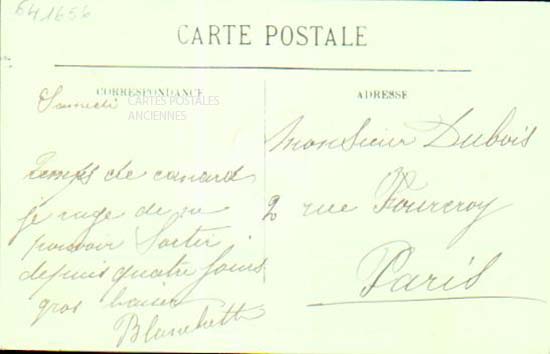 641656
CARTE POSTALE
CORRESPONDANCE
ADRESSE
CARTES POSTALES
ANCIENNES
Samedi
Temps de canard
je rage de ne
pouvoir sortir
depuis quatre jours
gros baiser
Blanchette
Monsieur Dubois
2 rue Fourcroy
Paris